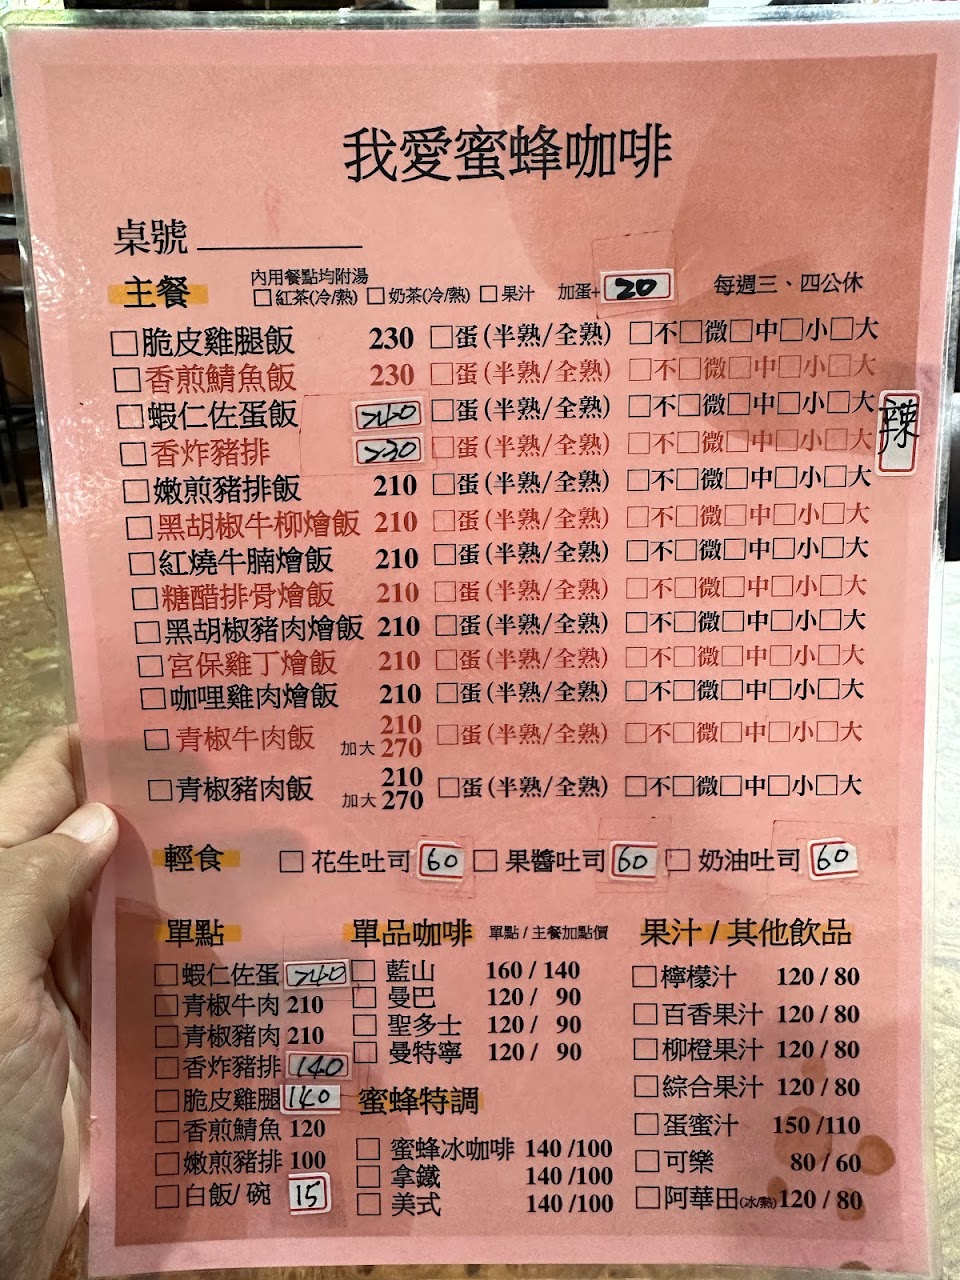 我愛蜜蜂咖啡
桌號
主餐 內用餐點均附湯
□紅茶(冷/熱) □奶茶(冷/熱) □果汁 加蛋+20 每週三、四公休
□脆皮雞腿飯 230 □蛋(半熟/全熟) □不□微□中□小□大
□香煎鯖魚飯 230 □蛋(半熟/全熟) □不□微□中□小□大
□蝦仁佐蛋飯 240 □蛋(半熟/全熟) □不□微□中□小□大 辣
□香炸豬排 230 □蛋(半熟/全熟) □不□微□中□小□大
□嫩煎豬排飯 210 □蛋(半熟/全熟) □不□微□中□小□大
□黑胡椒牛柳燴飯 210 □蛋(半熟/全熟) □不□微□中□小□大
□紅燒牛腩燴飯 210 □蛋(半熟/全熟) □不□微□中□小□大
□糖醋排骨燴飯 210 □蛋(半熟/全熟) □不□微□中□小□大
□黑胡椒豬肉燴飯 210 □蛋(半熟/全熟) □不□微□中□小□大
□宮保雞丁燴飯 210 □蛋(半熟/全熟) □不□微□中□小□大
□咖哩雞肉燴飯 210 □蛋(半熟/全熟) □不□微□中□小□大
□青椒牛肉飯 210 □蛋(半熟/全熟) □不□微□中□小□大
加大 270
□青椒豬肉飯 210 □蛋(半熟/全熟) □不□微□中□小□大
加大 270
輕食 □花生吐司 60 □果醬吐司 60 □奶油吐司 60
單點
□蝦仁佐蛋 240
□青椒牛肉 210
□青椒豬肉 210
□香炸豬排 140
□脆皮雞腿 140
□香煎鯖魚 120
□嫩煎豬排 100
□白飯/碗 15
單品咖啡 單點/主餐加點價
□藍山 160 / 140
□曼巴 120 / 90
□聖多士 120 / 90
□曼特寧 120 / 90
蜜蜂特調
□蜜蜂冰咖啡 140 /100
□拿鐵 140 /100
□美式 140 /100
果汁 / 其他飲品
□檸檬汁 120 / 80
□百香果汁 120 / 80
□柳橙果汁 120 / 80
□綜合果汁 120 / 80
□蛋蜜汁 150 /110
□可樂 80 / 60
□阿華田(冰/熱) 120 / 80